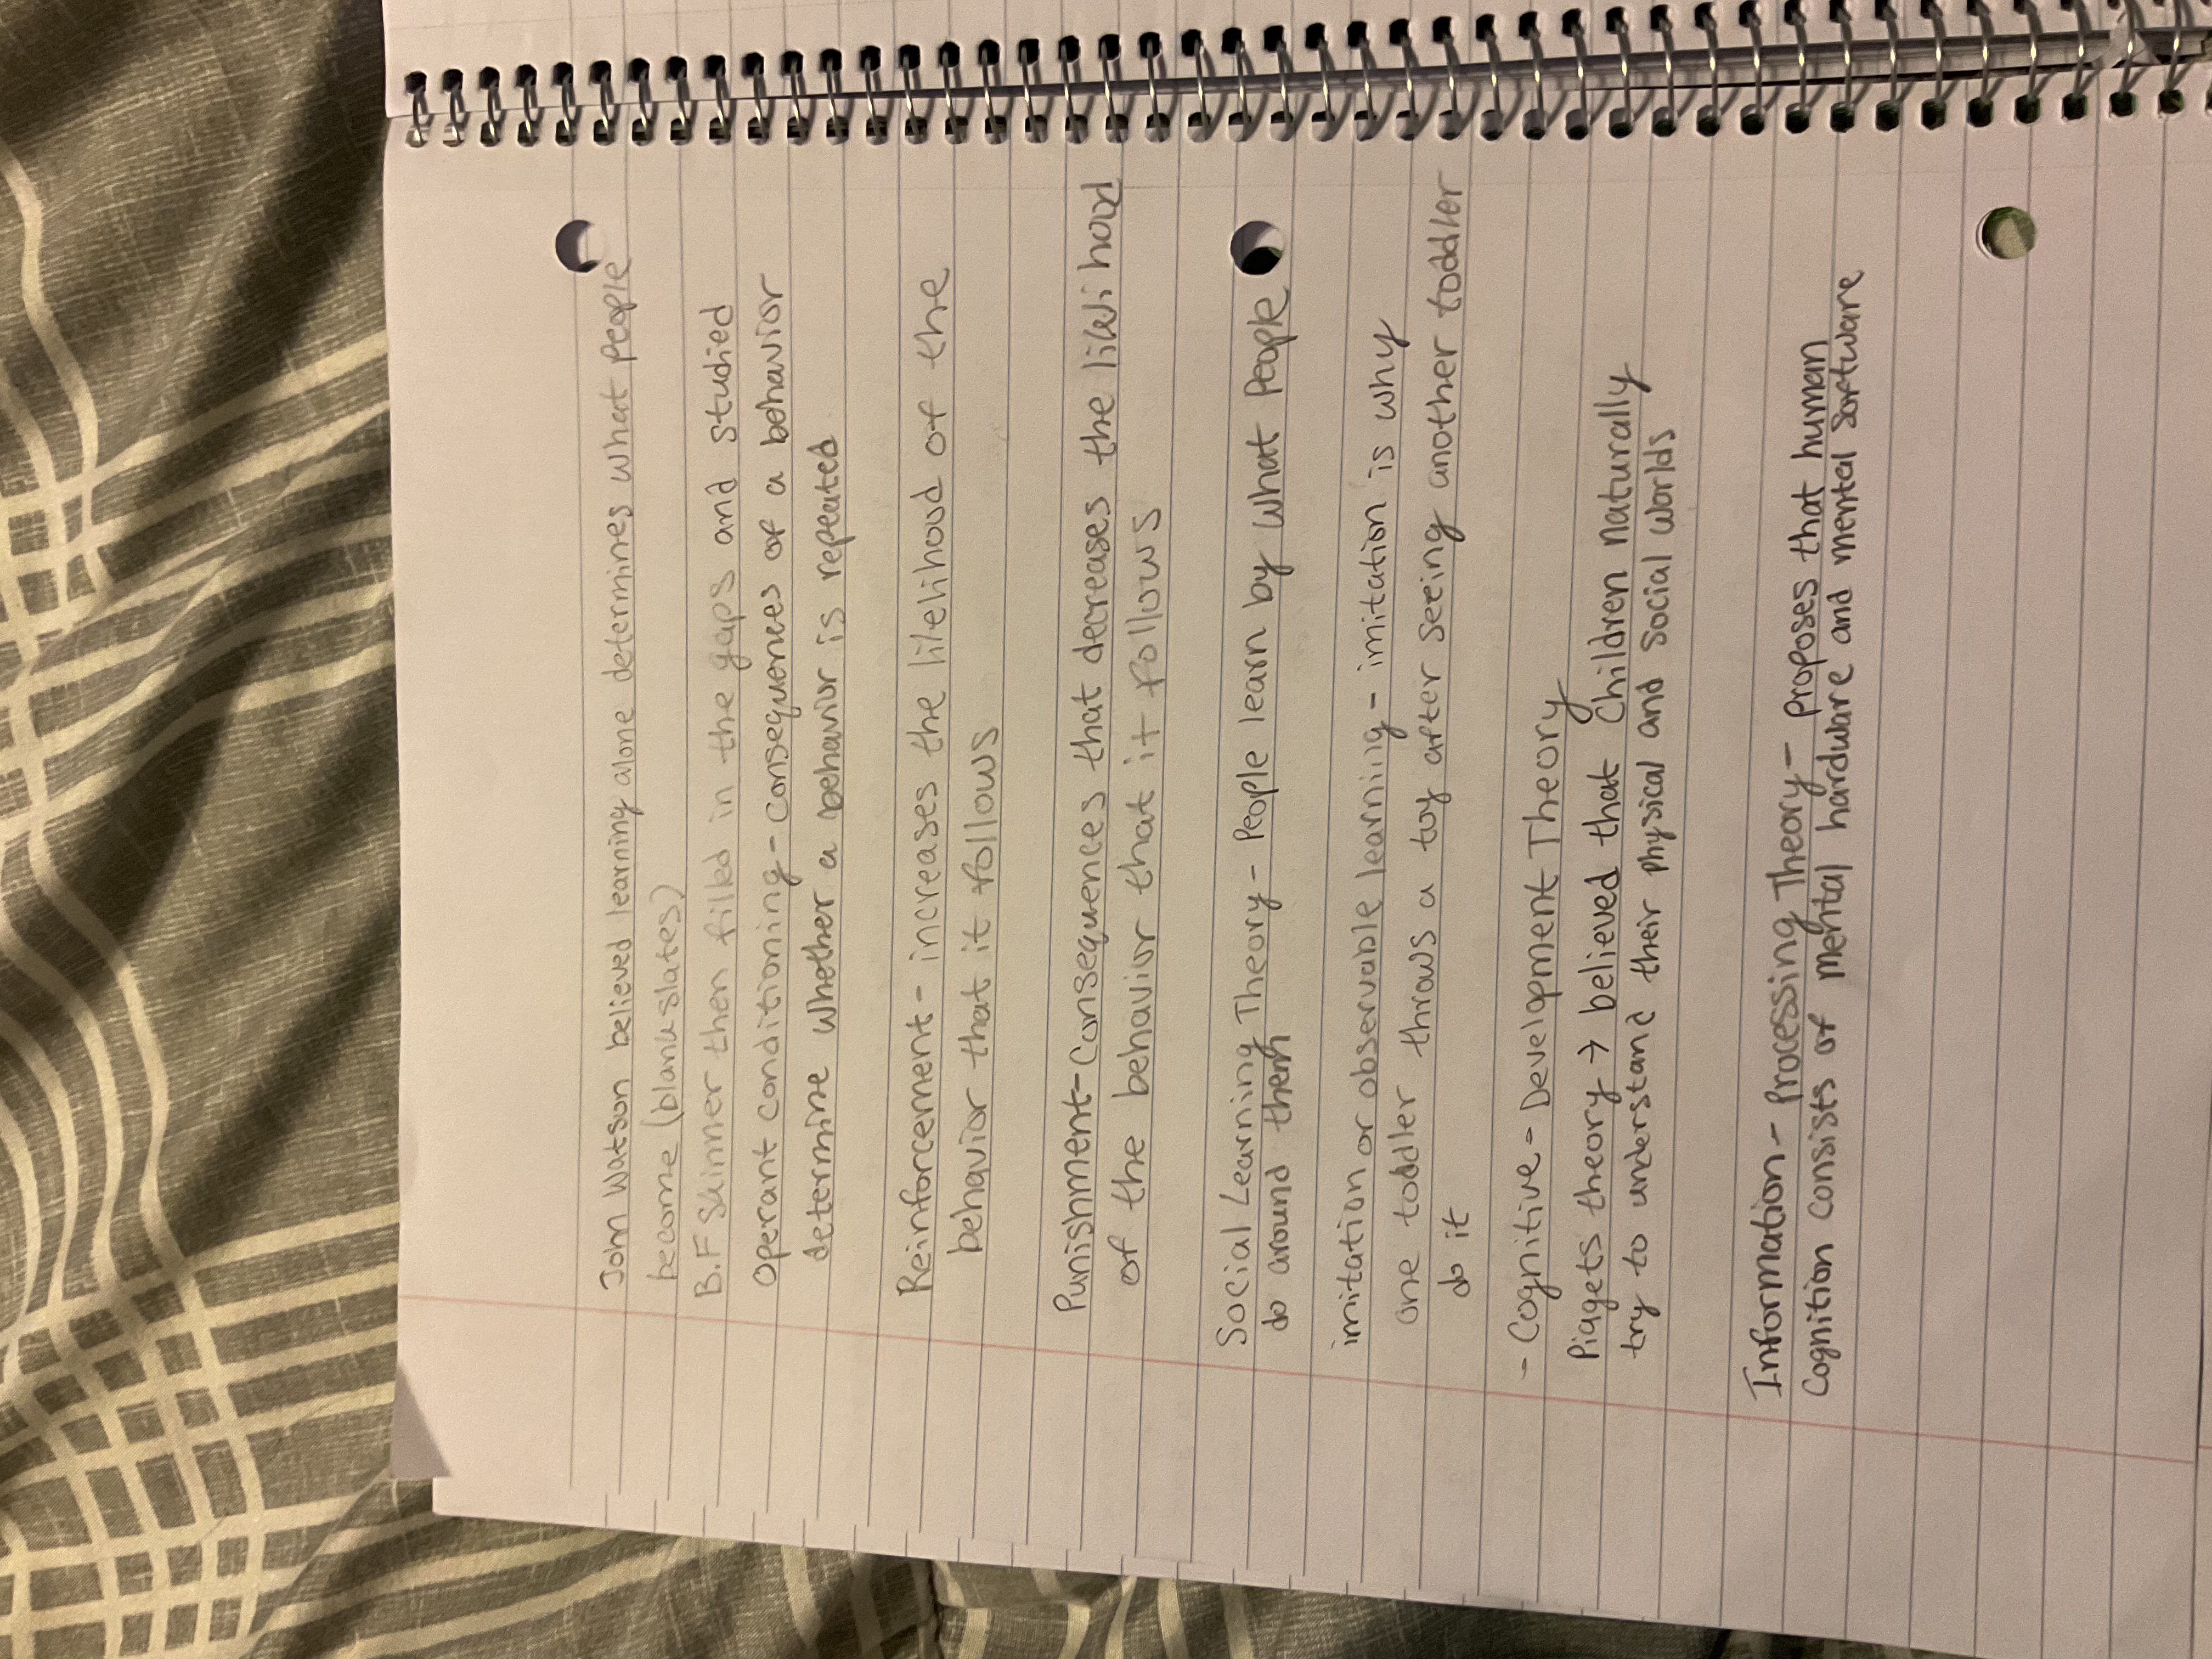 John Watson believed learning alone determines what people
become (blank slates)
B.F Skinner then filled in the gaps and studied
Operant conditioning - consequences of a behavior
determine whether a behavior is repeated
Reinforcement - increases the likelihood of the
behavior that it follows
Punishment - Consequences that decreases the likelihood
of the behavior that it follows
Social Learning Theory - People learn by what People
do around them
imitation or observable learning - imitation is why
one toddler throws a toy after seeing another toddler
do it
- Cognitive - Development Theory
Piagets theory → believed that Children naturally
try to understand their physical and social worlds
Information - Processing Theory - Proposes that human
Cognition consists of mental hardware and mental software